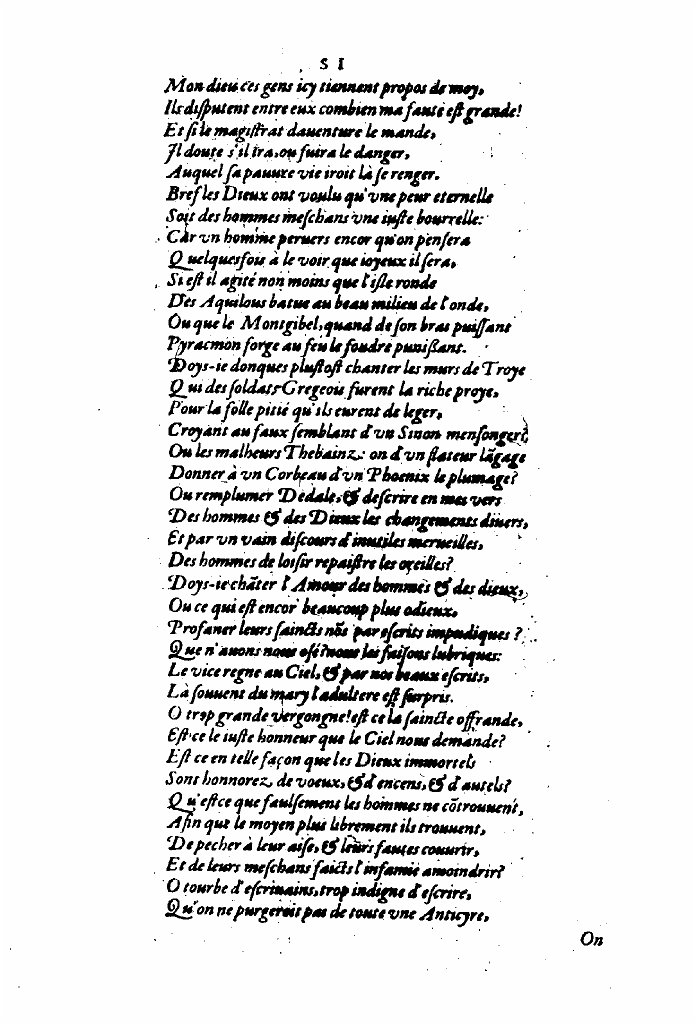 S I
Mon dieu ces gens icy tiennent propos de moy,
Ils disputent entre eux combien ma faute est grande!
Et si le magistrat dauenture le mande,
Il doute s'il ira, ou fuira le danger,
Auquel sa pauure vie iroit là se renger.
Bref les Dieux ont voulu qu'vne peur eternelle
Soit des hommes meschans vne iuste bourrelle:
Car vn homme peruers encor qu'on pensera
Quelquesfois à le voir que ioyeux il sera,
Si est il agité non moins que l'isle ronde
Des Aquilons batue au beau milieu de l'onde,
Ou que le Montgibel, quand de son bras puissant
Pyracmon forge au feu le foudre punissant.
Doys-ie donques plustost chanter les murs de Troye
Qui des soldats Gregeois furent la riche proye,
Pour la folle pitié qu'ils eurent de leger,
Croyant au faux semblant d'vn Sinon mensonger?
Ou les malheurs Thebainz: ou d'vn flateur lãgage
Donner à vn Corbeau d'vn Phoenix le plumage?
Ou remplumer Dedale, & descrire en mes vers
Des hommes & des Dieux les changements diuers,
Et par vn vain discours d'inutiles merueilles,
Des hommes de loisir repaistre les oreilles?
Doys-ie chãter l'Amour des hommes & des dieux,
Ou ce qui est encor beaucoup plus odieux,
Profaner leurs saincts nõs par escrits impudiques?
Que n'auons nous osé? nous les faisons lubriques:
Le vice regne au Ciel, & par nos beaux escrits,
Là souuent du mary l'adultere est surpris.
O trop grande vergongne! est ce la saincte offrande,
Est-ce le iuste honneur que le Ciel nous demande?
Est ce en telle façon que les Dieux immortels
Sont honnorez, de voeux, & d'encens, & d'autels?
Qu'est ce que faulsement les hommes ne cõtrouuent,
Afin que le moyen plus librement ils trouuent,
De pecher à leur aise, & leurs fautes couurir,
Et de leurs meschans faicts l'infamie amoindrir?
O tourbe d'escriuains, trop indigne d'escrire,
Qu'on ne purgeroit pas de toute vne Anticyre,
On